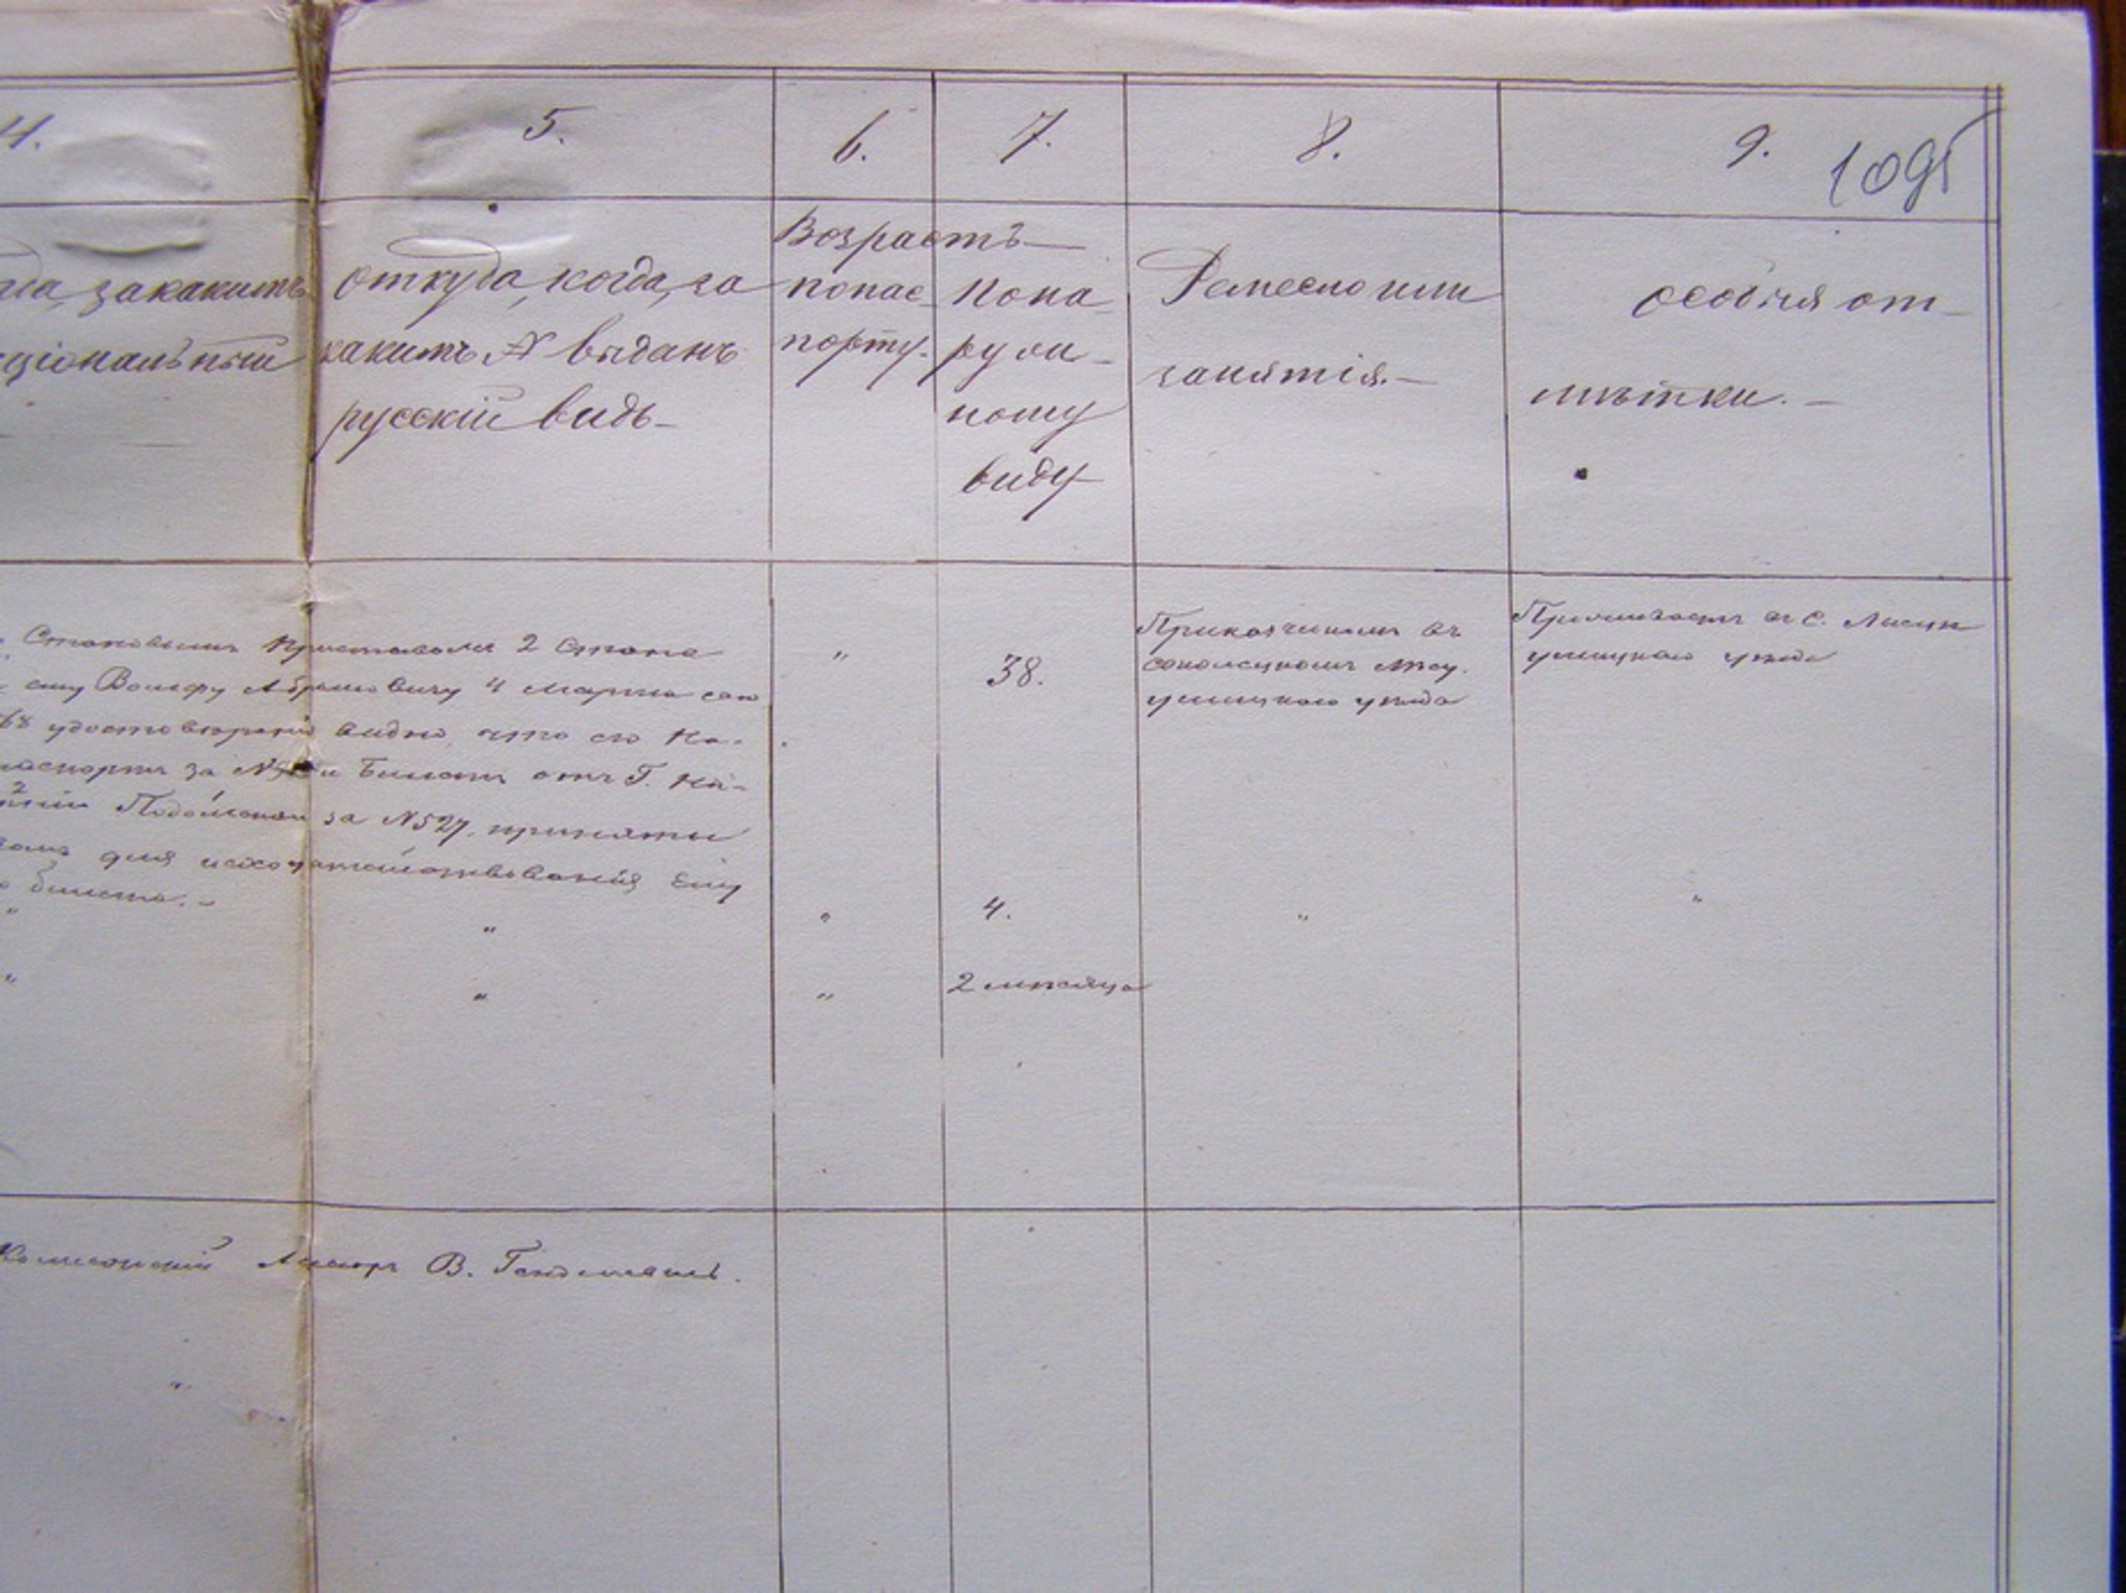 4.
5.
6.
7.
8.
9.
1095
гда, за какимъ
ціональный
откуда, когда, за
какимъ № выданъ
русскій видъ
Возрастъ
по пас
порту.
По на
ружи
ному
виду
Ремесло или
занятія.
особыя от
мѣтки.
Становымъ Приставомъ 2 Стана
ему Вольфу Абрамовичу 4 Марта сего
68 удостовѣренія видно, что его На-
паспортъ за № и Билетъ отъ Г. На-
Подольской за № 527, приняты
для исходатайствованія ему
билета.
"
38.
Приказчикомъ въ
Ушицкаго уѣзда
Проживаетъ въ С.
ушицкаго уѣзда
"
"
"
4.
"
"
"
"
"
2 мѣсяца
В.
"